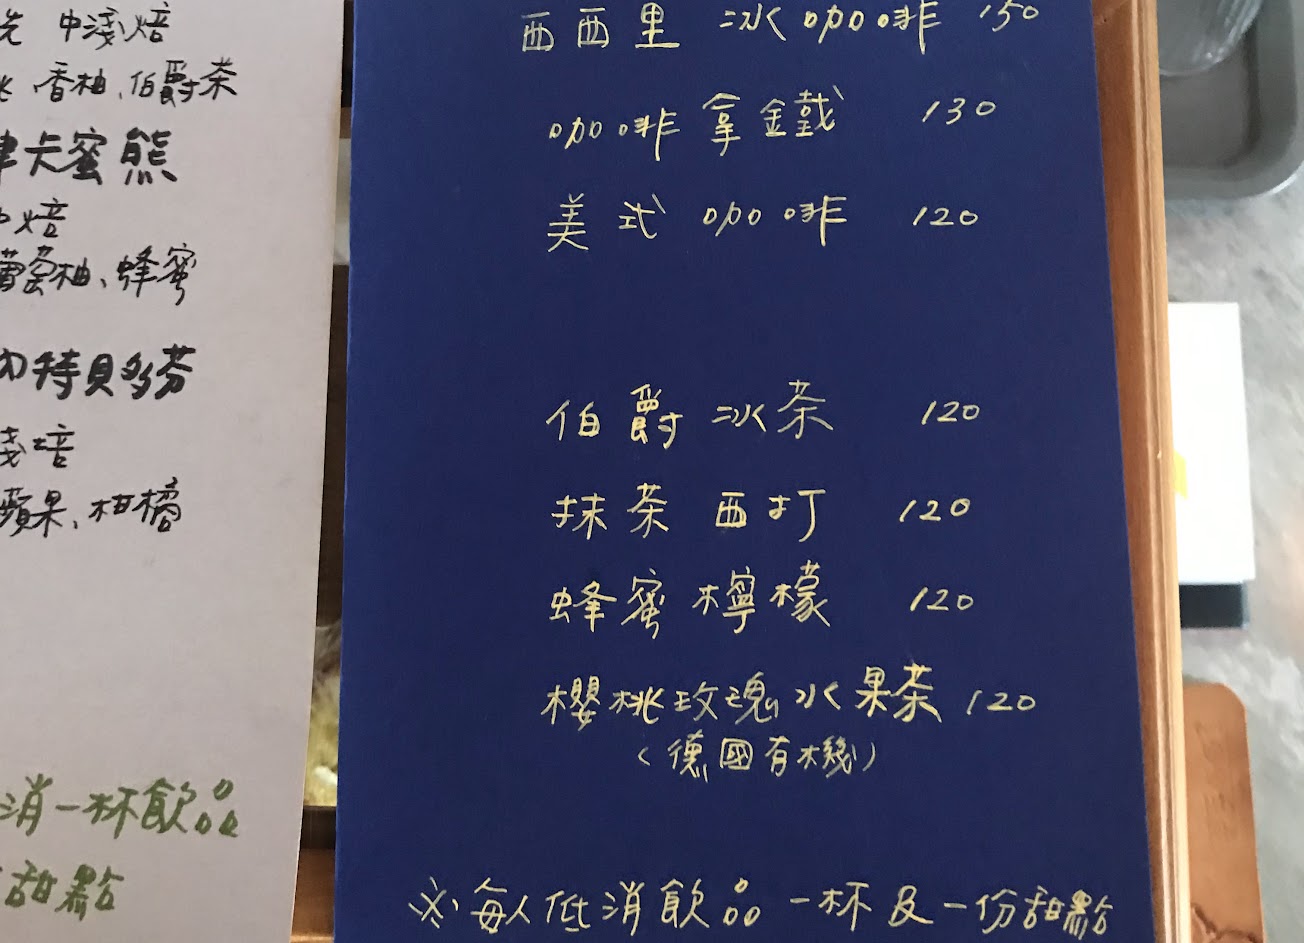 中淺焙
香柚、伯爵茶
卡蜜熊
焙
葡萄柚、蜂蜜
特貝多芬
淺焙
蘋果、柑橘
消一杯飲品
甜點
西西里 冰咖啡 150
咖啡拿鐵 130
美式咖啡 120
伯爵冰茶 120
抹茶西打 120
蜂蜜檸檬 120
櫻桃玫瑰水果茶 120
(德國有機)
※每人低消飲品一杯及一份甜點